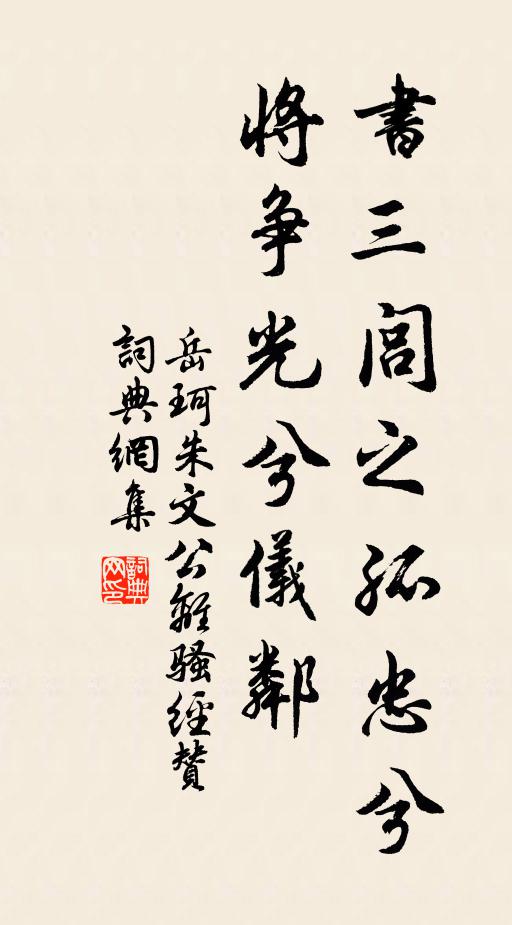 書三閭之孤忠兮
將爭光兮儀鄰
岳珂朱文公離騷經贊
詞典網集
詞典网印